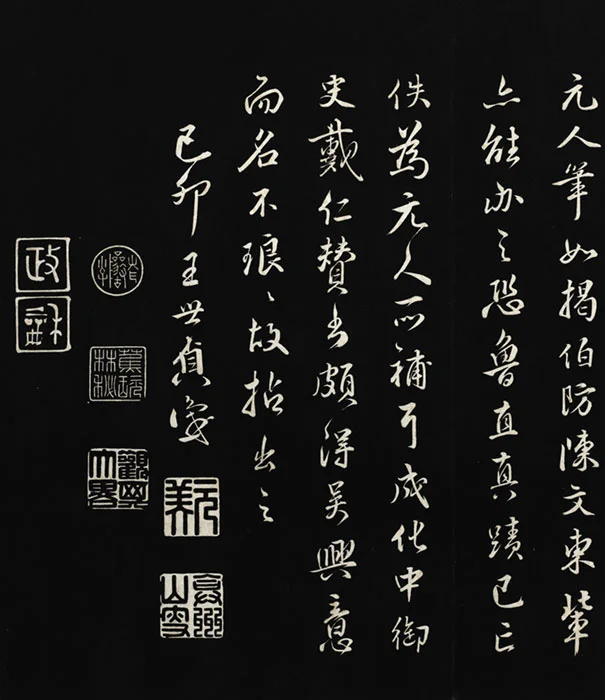 元人筆如揭伯防陳文東輩
亦能办之恐魯直真蹟已亡
佚為元人所補耳成化中御
史戴仁贊書頗得吳興意
而名不琅〻故拈出之
己卯王世貞識
元美
觀其大略
政和